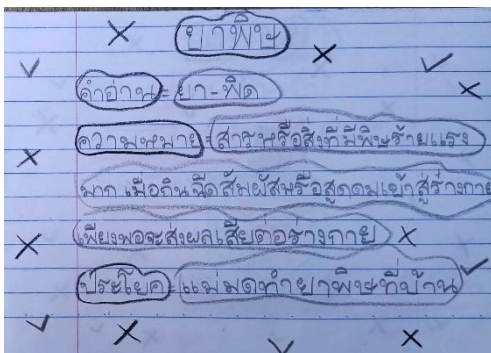 ยาพิษ
คำอ่าน = ยา-พิด
ความหมาย = สารหรือสิ่งที่มีพิษร้ายแรง
มาก เมื่อกินฉีดสัมผัสหรือสูดดมเข้าสู่ร่างกาย
เพียงพอจะส่งผลเสียต่อร่างกาย
ประโยค = แม่มดทำยาพิษที่บ้าน